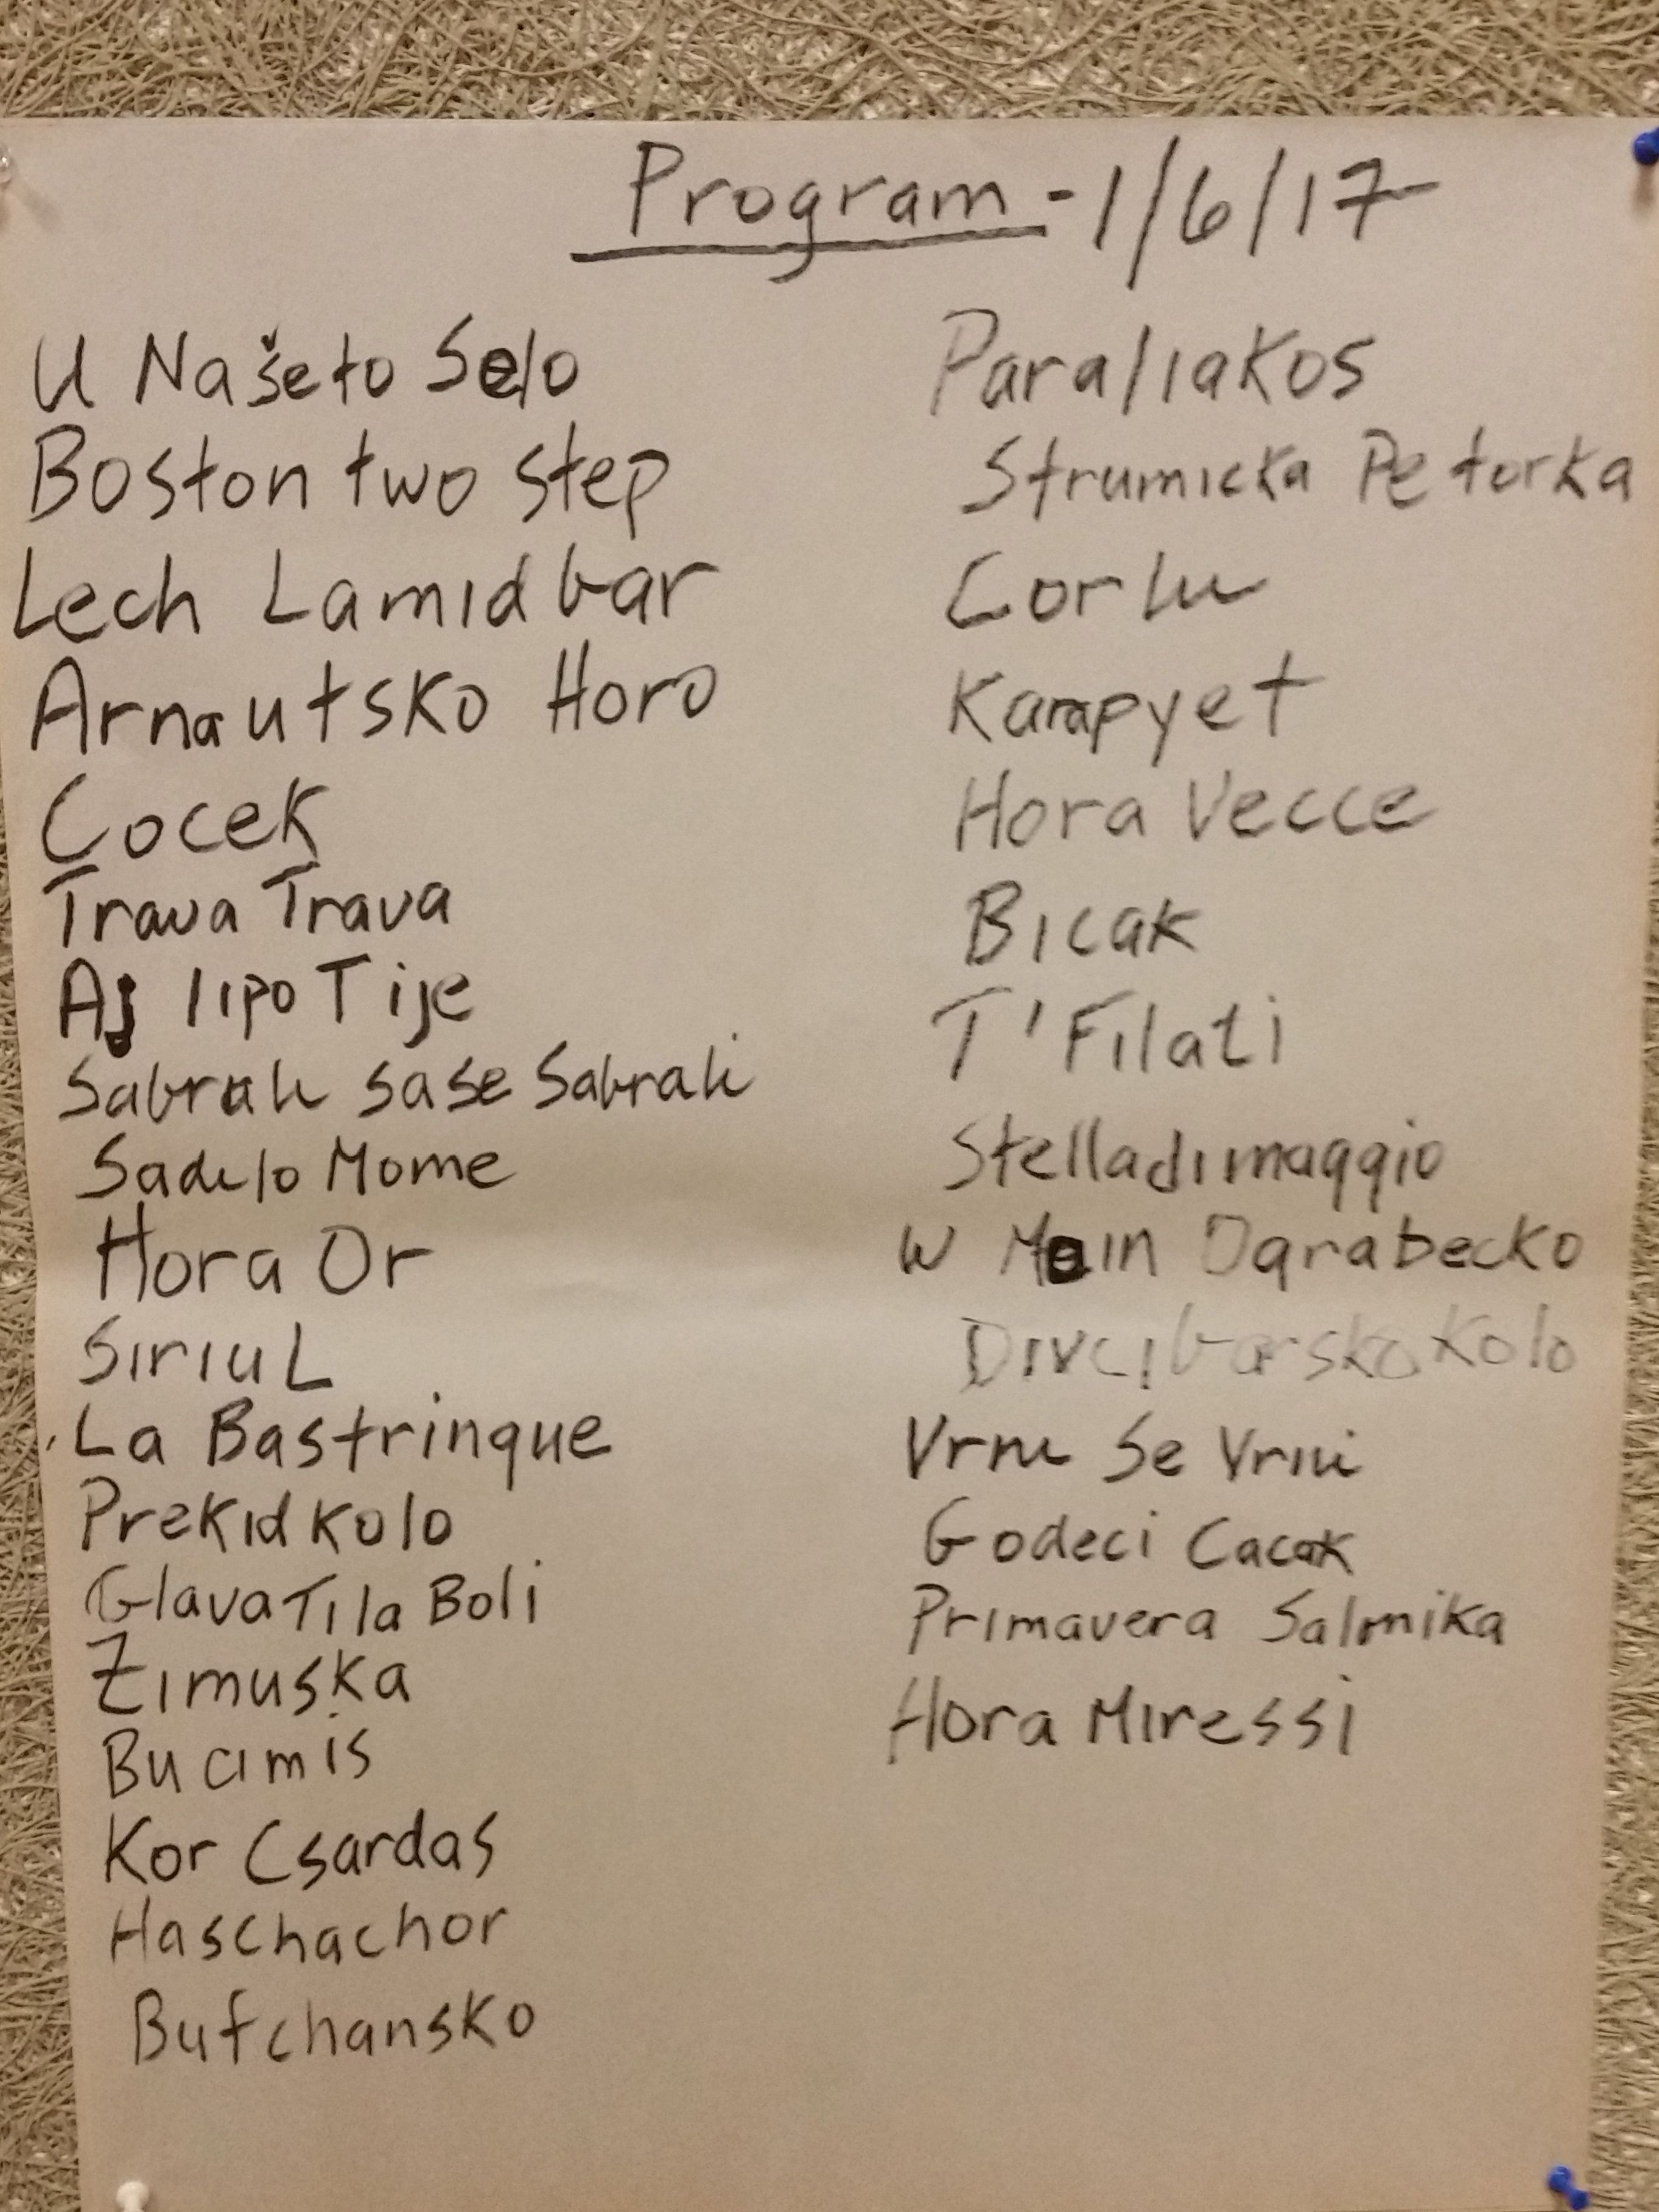 Program - 1/6/17
U Našeto Selo
Boston two step
Lech Lamidbar
Arnautsko Horo
Cocek
Trava Trava
Aj lipo Tije
Sabrali sase Sabrali
Sadilo Mome
Hora Or
Siriul
La Bastringue
Prekid Kolo
Glava Ti la Boli
Zimuska
Bucimis
Kor Csardas
Haschachor
Bufchansko
Paraliakos
Strumicka Petorka
Corlu
Karapyet
Hora Vecce
Bicak
T'Filati
Stelladimaggio
W Moin Ograbecko
Divcibarsko Kolo
Vrni Se Vrni
Godeci Cacak
Primavera Salonika
Hora Miressi